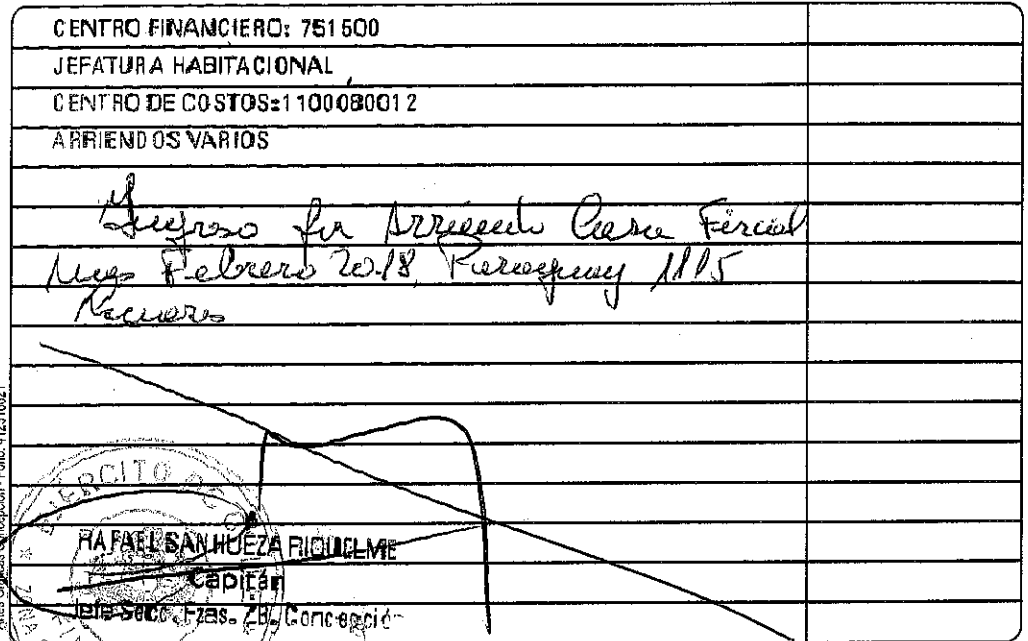 CENTRO FINANCIERO: 751500
JEFATURA HABITACIONAL
CENTRO DE COSTOS:1100080012
ARRIENDOS VARIOS
Ingreso por Arriendo Casa Fiscal
Mes Febrero 2018, Paraguay 1115
EJERCITO DE
RAFAEL SAN HUEZA RIQUELME
Capitán
Jefe Secc. Fzas. ZB. Concepción